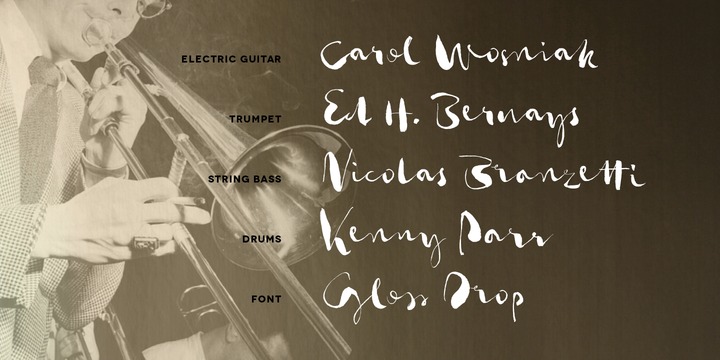 ELECTRIC GUITAR Carol Wosniak
TRUMPET Ed H. Bernays
STRING BASS Nicolas Branzetti
DRUMS Kenny Parr
FONT Gloss Drop